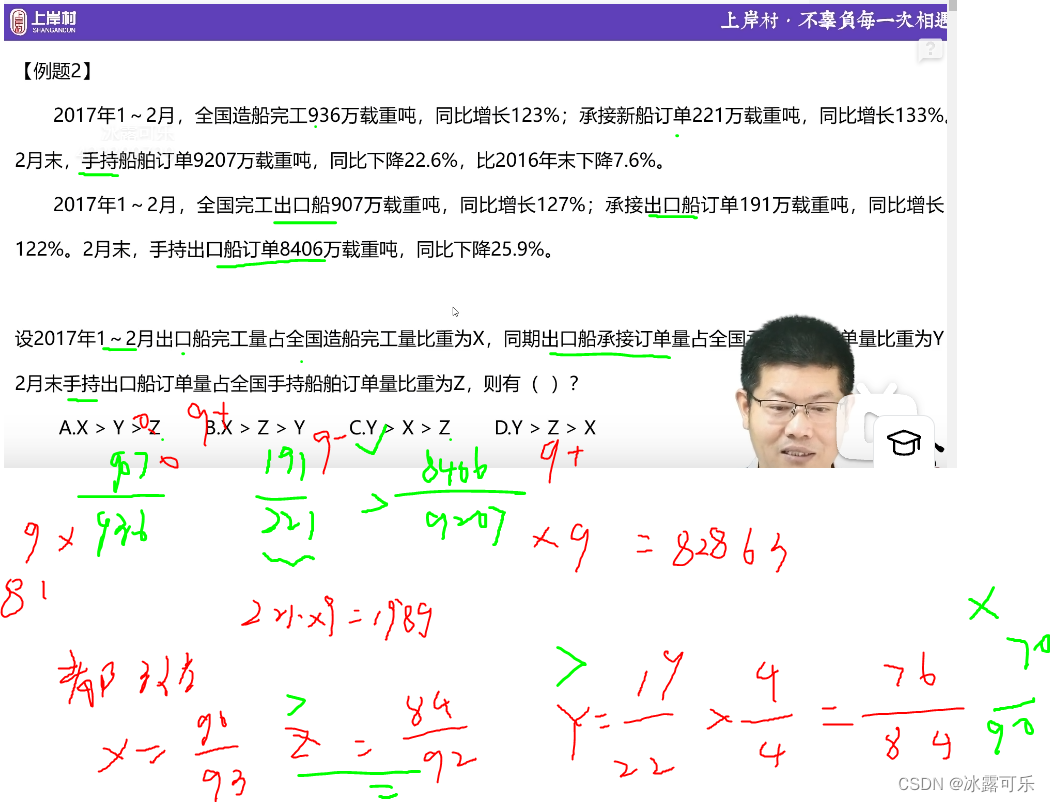 上岸村
SHANGANCUN
上岸村·不辜負每一次相遇
?
【例题2】
2017年1～2月，全国造船完工936万载重吨，同比增长123%；承接新船订单221万载重吨，同比增长133%。
2月末，手持船舶订单9207万载重吨，同比下降22.6%，比2016年末下降7.6%。
2017年1～2月，全国完工出口船907万载重吨，同比增长127%；承接出口船订单191万载重吨，同比增长
122%。2月末，手持出口船订单8406万载重吨，同比下降25.9%。
设2017年1～2月出口船完工量占全国造船完工量比重为X，同期出口船承接订单量占全国 单量比重为Y
2月末手持出口船订单量占全国手持船舶订单量比重为Z，则有（ ）？
A.X > Y > Z B.X > Z > Y C.Y > X > Z D.Y > Z > X
9+ 9- 9+
907 191 > 8406
936 221 9207
9 × × 9 = 82863
81
221×9=1989
X = 90/93 > Z = 84/92
> Y = 19/22 × 4/4 = 76/84
×
70
90
CSDN @冰露可乐